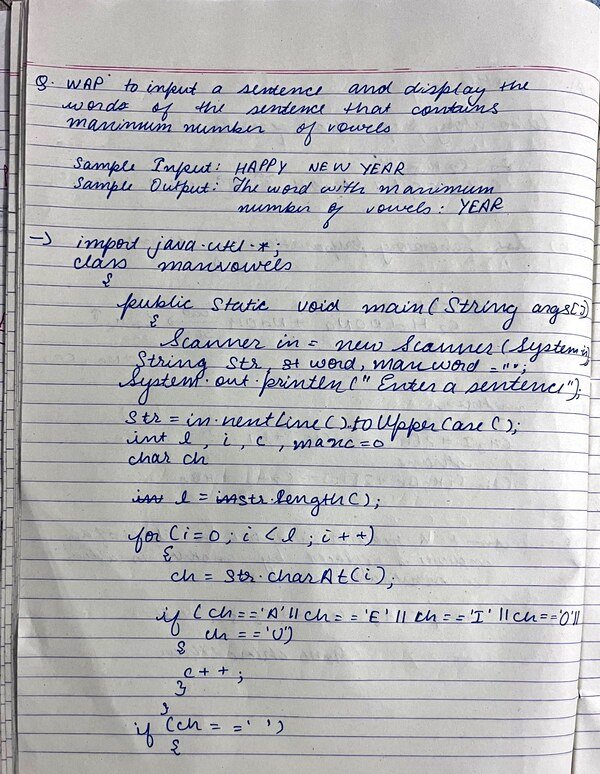 Q. WAP to input a sentence and display the
words of the sentence that contains
maximum number of vowels
Sample Input: HAPPY NEW YEAR
Sample Output: The word with maximum
number of vowels: YEAR
→ import java.util.*;
class maxvowels
{
public static void main(String args[])
{
Scanner in = new Scanner(System.in)
String str, st word, maxword = "";
System.out.println("Enter a sentence");
str = in.nextLine().toUpperCase();
int l, i, c, maxc=0
char ch
int l = instr.length();
for (i=0; i<l; i++)
{
ch = str.charAt(i);
if (ch=='A'||ch=='E'||ch=='I'||ch=='O'||
ch=='U')
{
c++;
}
}
if (ch==' ')
{